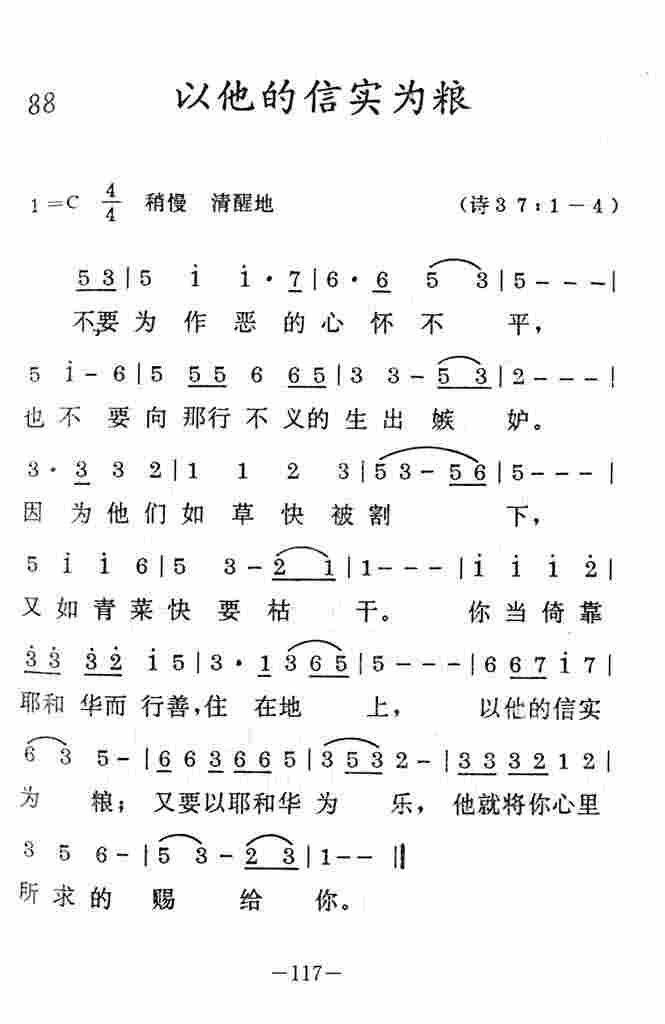 88
以他的信实为粮
1=C 4/4 稍慢 清醒地 (诗37:1-4)
5 3 | 5 i i· 7 | 6· 6 5 3 | 5 - - - |
不要为作恶的心怀不平,
5 i - 6 | 5 5 5 6 6 5 | 3 3 - 5 3 | 2 - - - |
也不要向那行不义的生出嫉妒。
3· 3 3 2 | 1 1 2 3 | 5 3 - 5 6 | 5 - - - |
因为他们如草快被割下,
5 i i 6 | 5 3 - 2 1 | 1 - - - | i i i 2̇ |
又如青菜快要枯干。 你当倚靠
3̇ 3̇ 3̇ 2̇ i 5 | 3· 1 3 6 5 | 5 - - - | 6 6 7 i 7 |
耶和华而行善,住在地上, 以他的信实
6 3 5 - | 6 6 3 6 6 5 | 3 5 3 2 - | 3 3 3 2 1 2 |
为粮;又要以耶和华为乐,他就将你心里
3 5 6 - | 5 3 - 2 3 | 1 - - ‖
所求的赐给你。
—117—